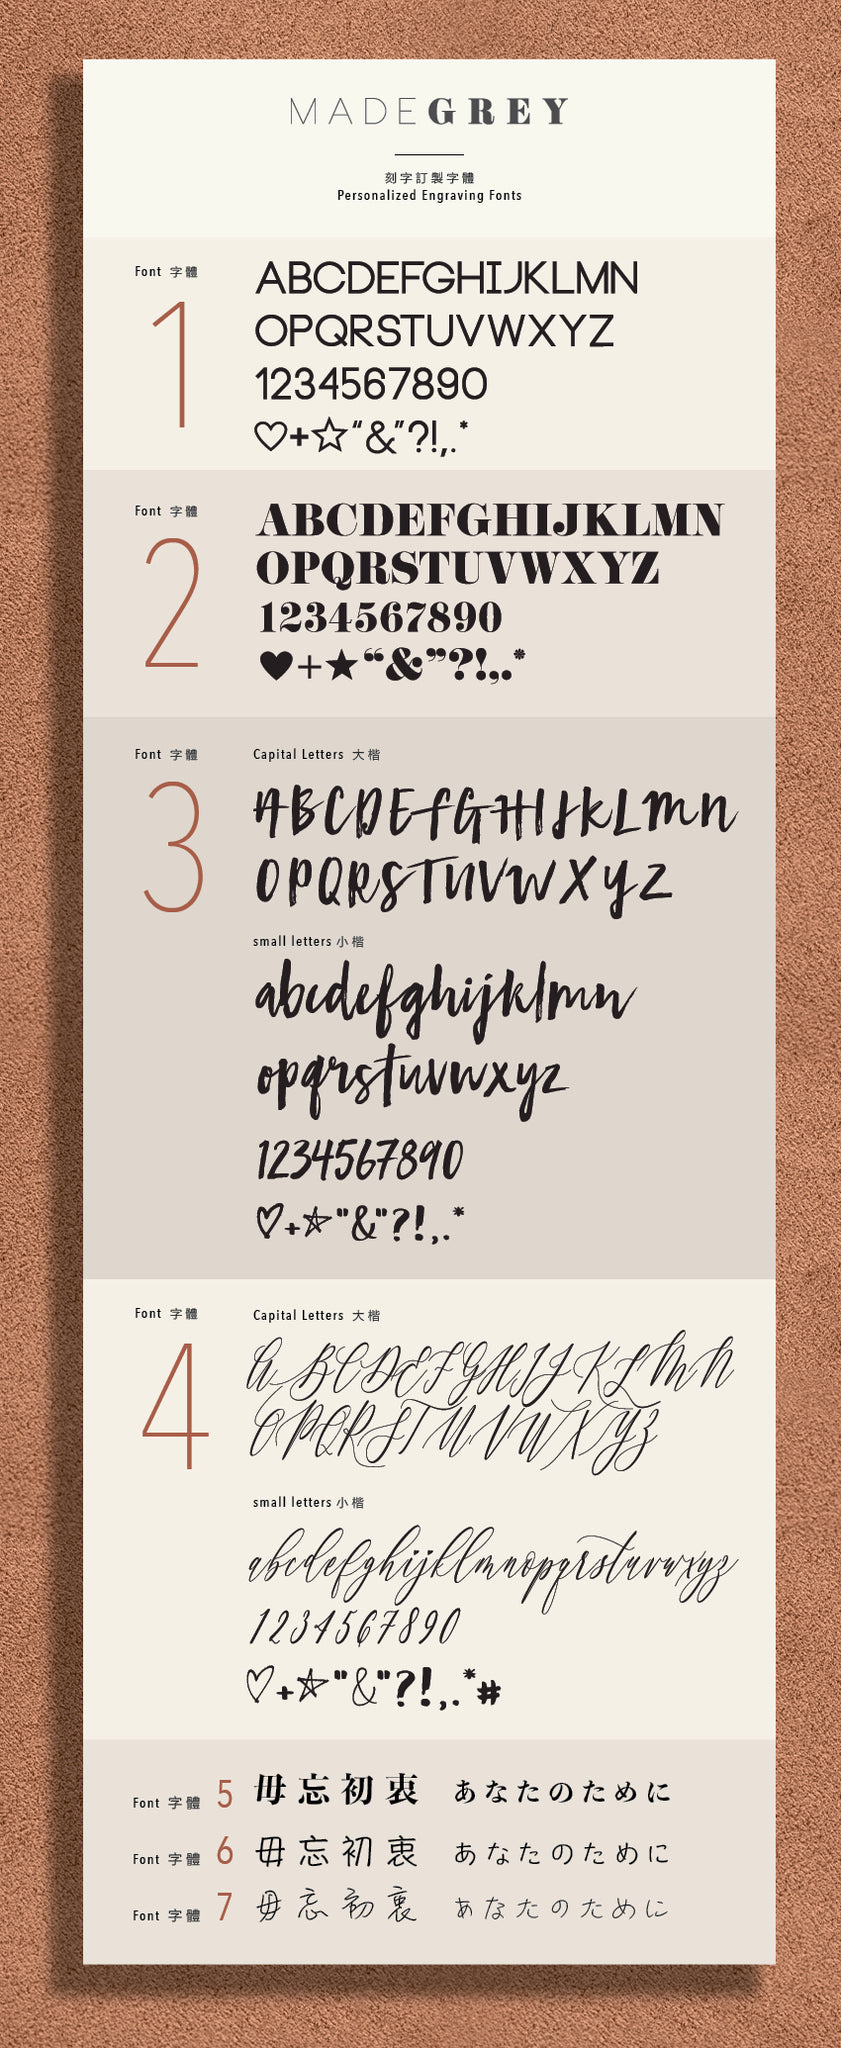 MADEGREY
刻字訂製字體
Personalized Engraving Fonts
Font 字體
1
ABCDEFGHIJKLMN
OPQRSTUVWXYZ
1234567890
♡+☆“&”?!,.*
Font 字體
2
ABCDEFGHIJKLMN
OPQRSTUVWXYZ
1234567890
♥+★“&”?!,.*
Font 字體
3
Capital Letters 大楷
ABCDEFGHIJKLMN
OPQRSTUVWXYZ
small letters 小楷
abcdefghijklmn
opqrstuvwxyz
1234567890
♡+☆"&"?!,.*
Font 字體
4
Capital Letters 大楷
ABCDEFGHIJKLMN
OPQRSTUVWXYZ
small letters 小楷
abcdefghijklmnopqrstuvwxyz
1234567890
♡+☆"&"?!,.*#
Font 字體 5 毋忘初衷 あなたのために
Font 字體 6 毋忘初衷 あなたのために
Font 字體 7 毋忘初衷 あなたのために